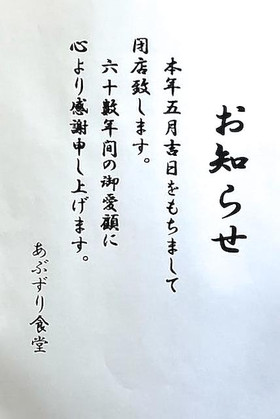 お知らせ
本年五月吉日をもちまして
閉店致します。
六十数年間の御愛顧に
心より感謝申し上げます。
あぶずり食堂